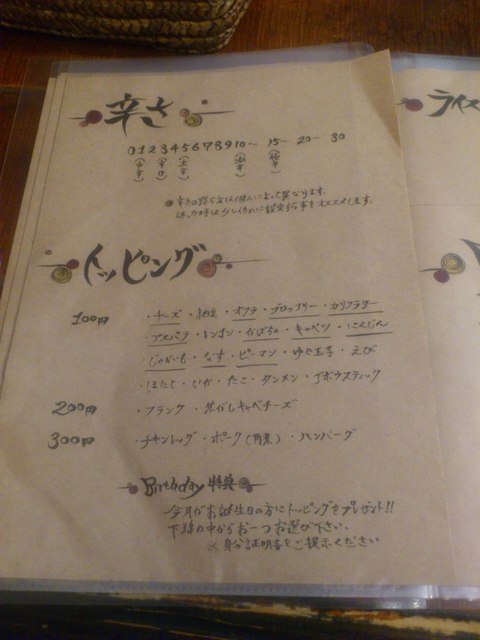 辛さ
ライス
0123456789 10～ 15～ 20～ 30
(中辛) (辛口) (大辛) (激辛) (極辛)
辛さの感じ方は個人によって異なります。
迷った時は少し低めに設定する事をオススメします。
トッピング
100円 ・チーズ ・納豆 ・オクラ ・ブロッコリー ・カリフラワー
・アスパラ ・レンコン ・かぼちゃ ・キャベツ ・にんじん
・じゃがいも ・なす ・ピーマン ・ゆで玉子 ・えび
・ほたて ・いか ・たこ ・タンメン ・ゴボウスティック
200円 ・フランク ・焦がしキャベチーズ
300円 ・チキンレッグ ・ポーク(角煮) ・ハンバーグ
Birthday 特典
今月がお誕生日の方にトッピングをプレゼント!!
下線の中からお一つお選び下さい。
※身分証明書をご提示ください